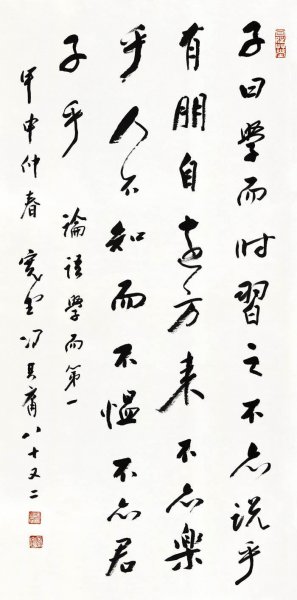 子曰學而时習之不亦说乎
有朋自遠方来不亦樂
乎人不知而不愠不亦君
子乎
論语學而第一
甲申仲春寬堂冯其庸八十又二